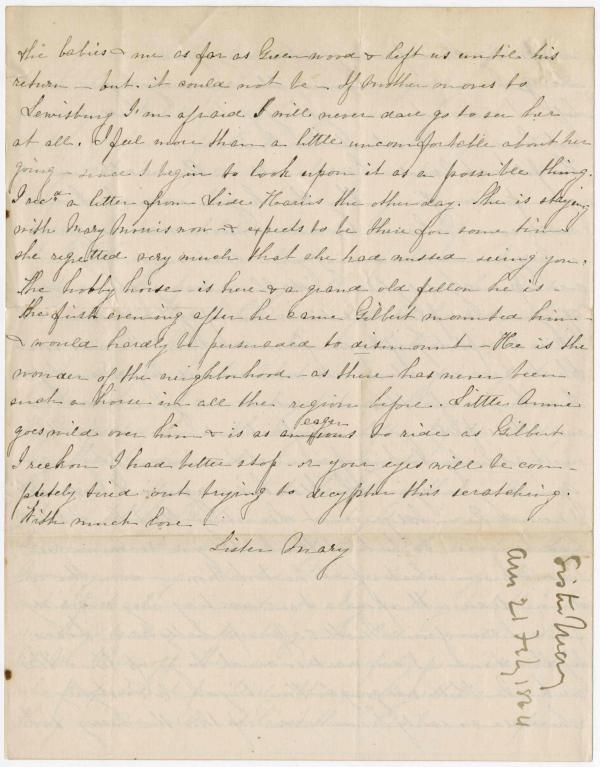 the babies & me as far as Greenwood & left us until his
return – but it could not be – If Mother moves to
Lewisburg I'm afraid I will never dare go to see her
at all. I feel more than a little uncomfortable about her
going – since I begin to look upon it as a possible thing.
I recd a letter from Lide Harris the other day. She is staying
with Mary Morris now – & expects to be there for some time
she regretted very much that she had missed seeing you.
The hobby horse is here & a grand old fellow he is –
the first evening after he came Gilbert mounted him –
& would hardly be persuaded to dismount – He is the
wonder of the neighborhood – as there has never been
such a horse in all the region before. Little Annie
eager
goes wild over him & is as anxious to ride as Gilbert
I reckon I had better stop – or your eyes will be com –
pletely tired out trying to decypher this scratching.
With much love
Sister Mary
Sister Mary
21 Feby 1864